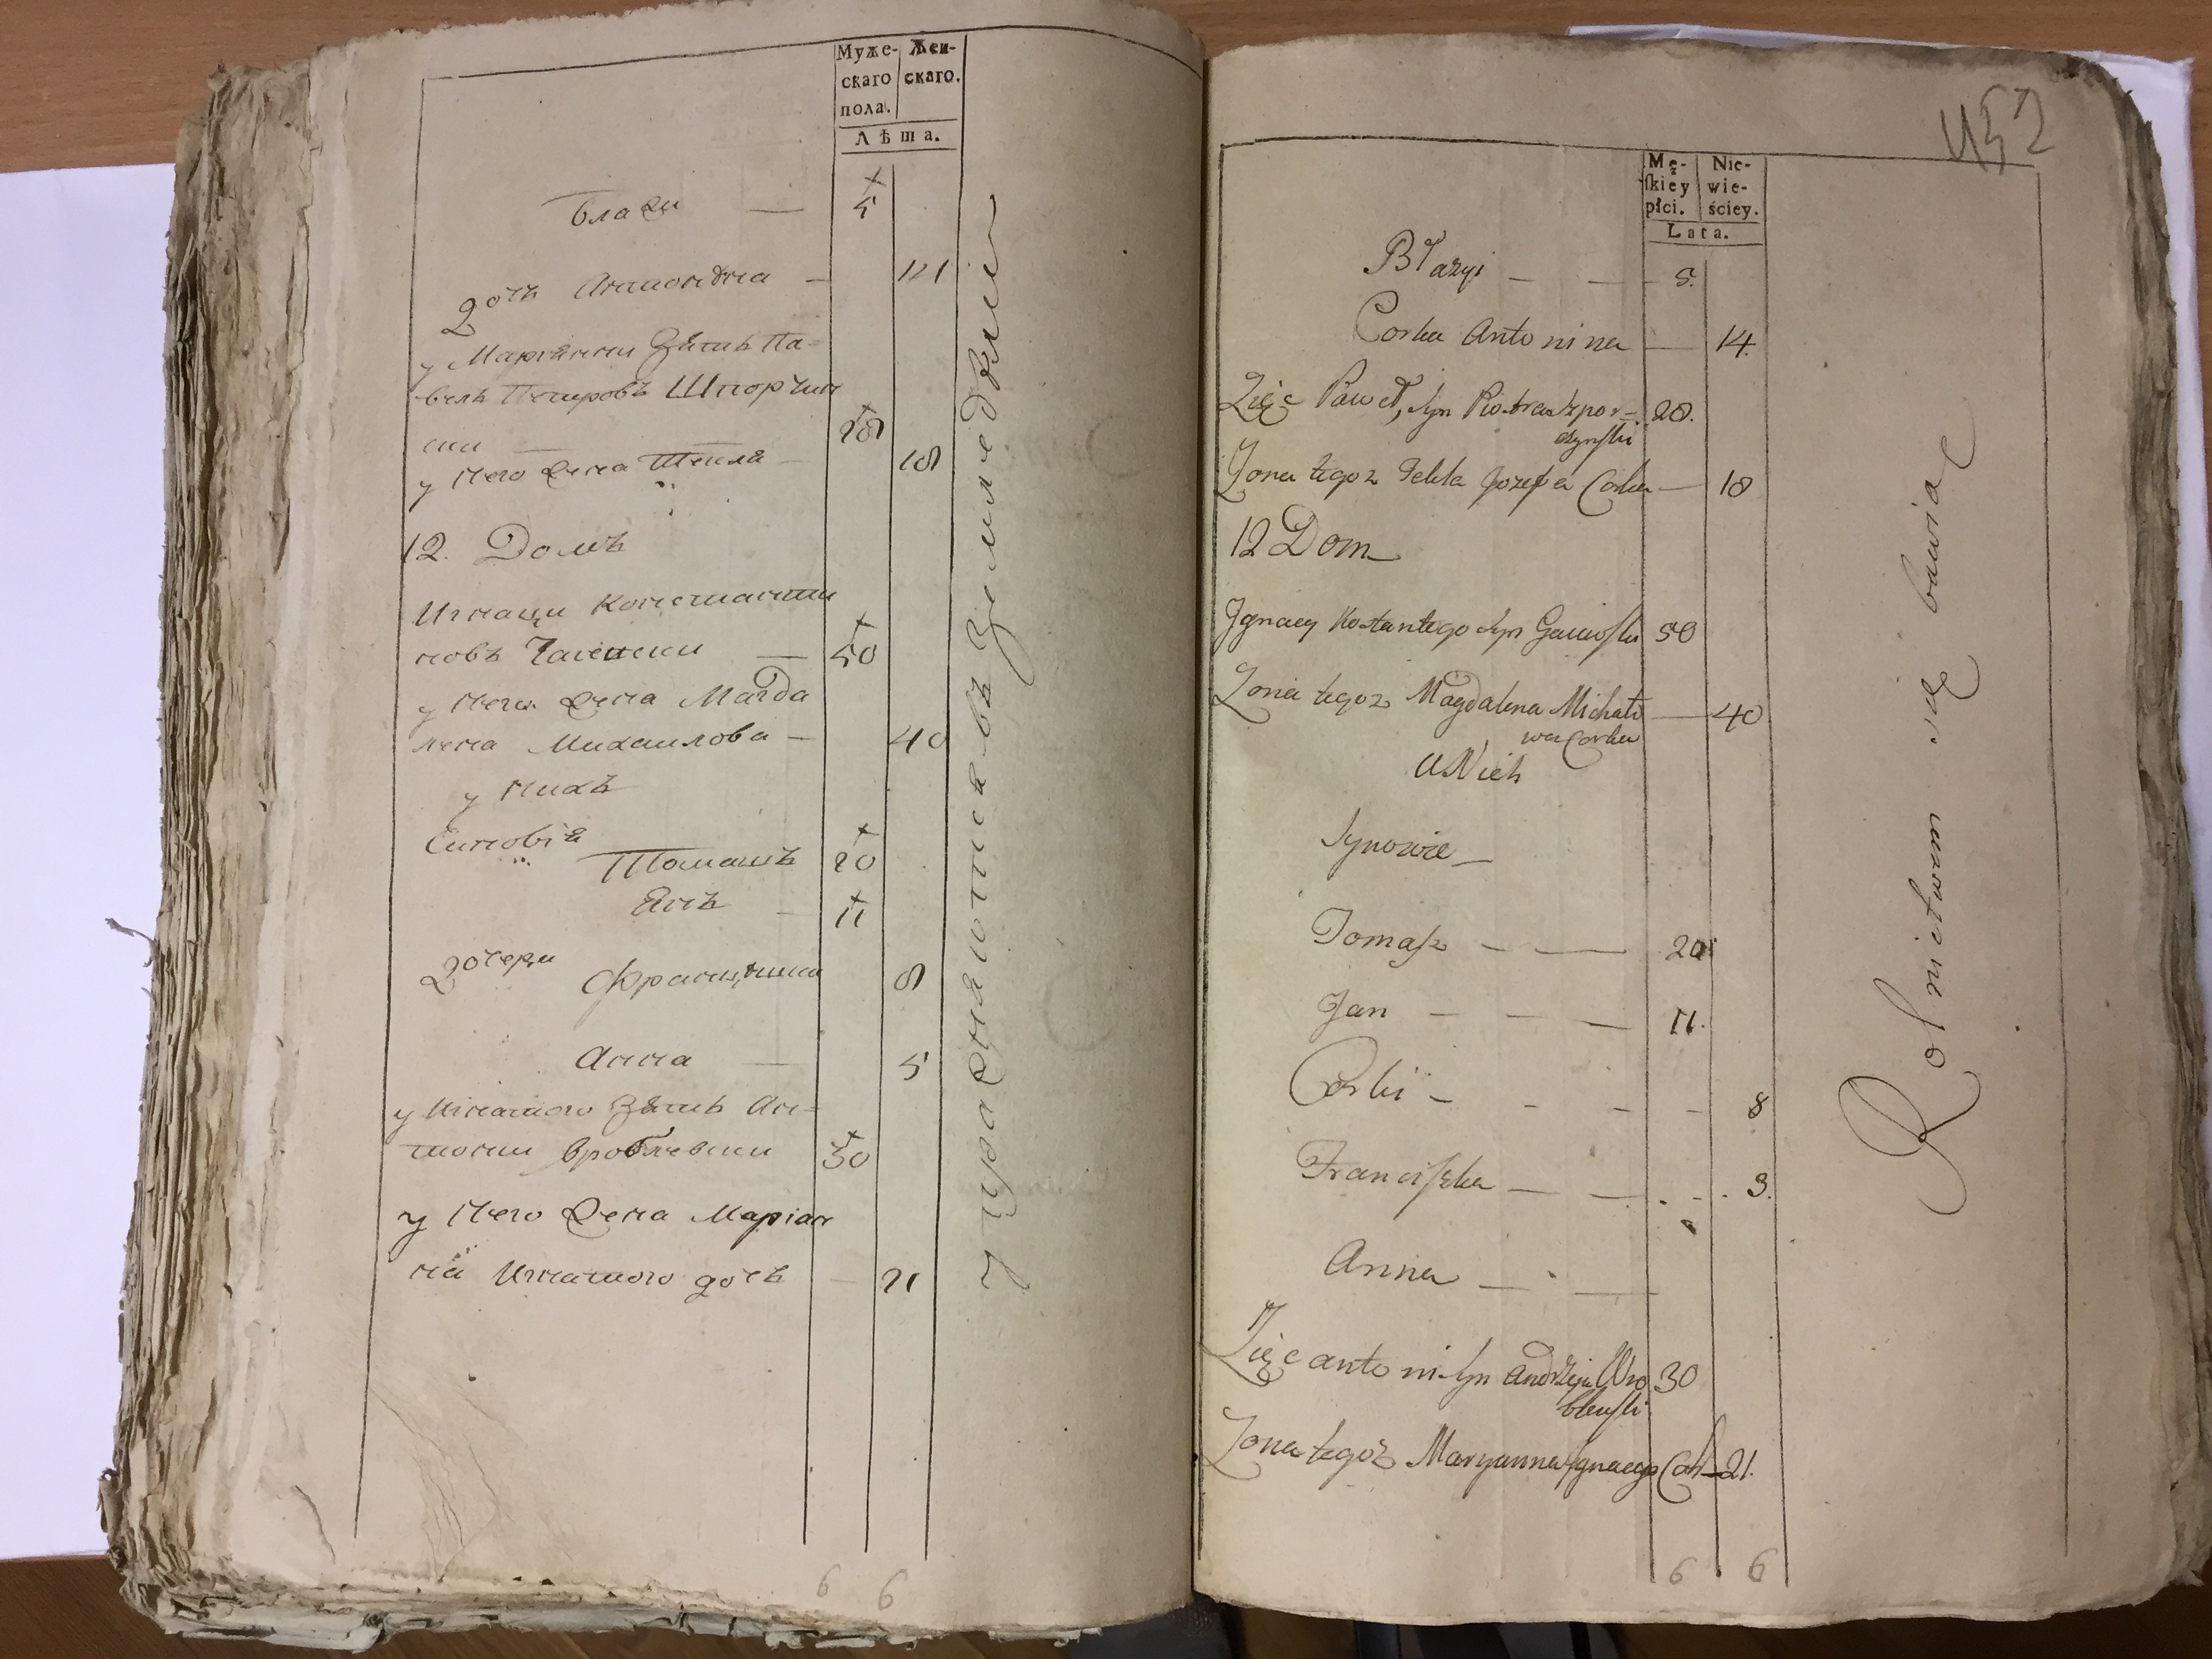 Муже-
скаго
пола.
Жен-
скаго.
Лѣта.
Блажи — 5
дочь Антонина — 14
у Марiанны Зять Па-
велъ Петровъ Шпорчин
ски — 28
у него жена Текля — 18
12. Домъ
Игнаци Константи
новъ — 50
у него жена Магда
лена Михаилова — 40
у нихъ
Сыновiя
Томашъ 20
Янъ — 11
дочери Францишка 8
Анна — 5
у Игнатого Зять Ан-
тони Вроблевски 30
у него жена Марiан
на Игнатого дочь — 21
упражняются въ Земледѣлiи
6 6
452
Mę-
skiey
płci.
Nie-
wie-
ściey.
Lata.
Błażyi — — 5.
Corka Antonina — 14.
Zięc Paweł, syn Piotra Szpor- 28.
czynski
Zona tegoz Tekla Jozefa Corka — 18
12 Dom
Ignacy Kostantego syn Gaiewski 50
Zona tegoz Magdalena Michało — 40
wa Corka
U Nich
Synowie —
Tomasz — — 20
Jan — — — 11.
Corki — - - - 8
Franciszka — — . - . 3.
Anna — —
Zięc antoni syn andrzeja Wro 30
blewski
Zona tegoż Maryanna Ignacego Cor — 21.
Rolnictwem się bawią
6 6